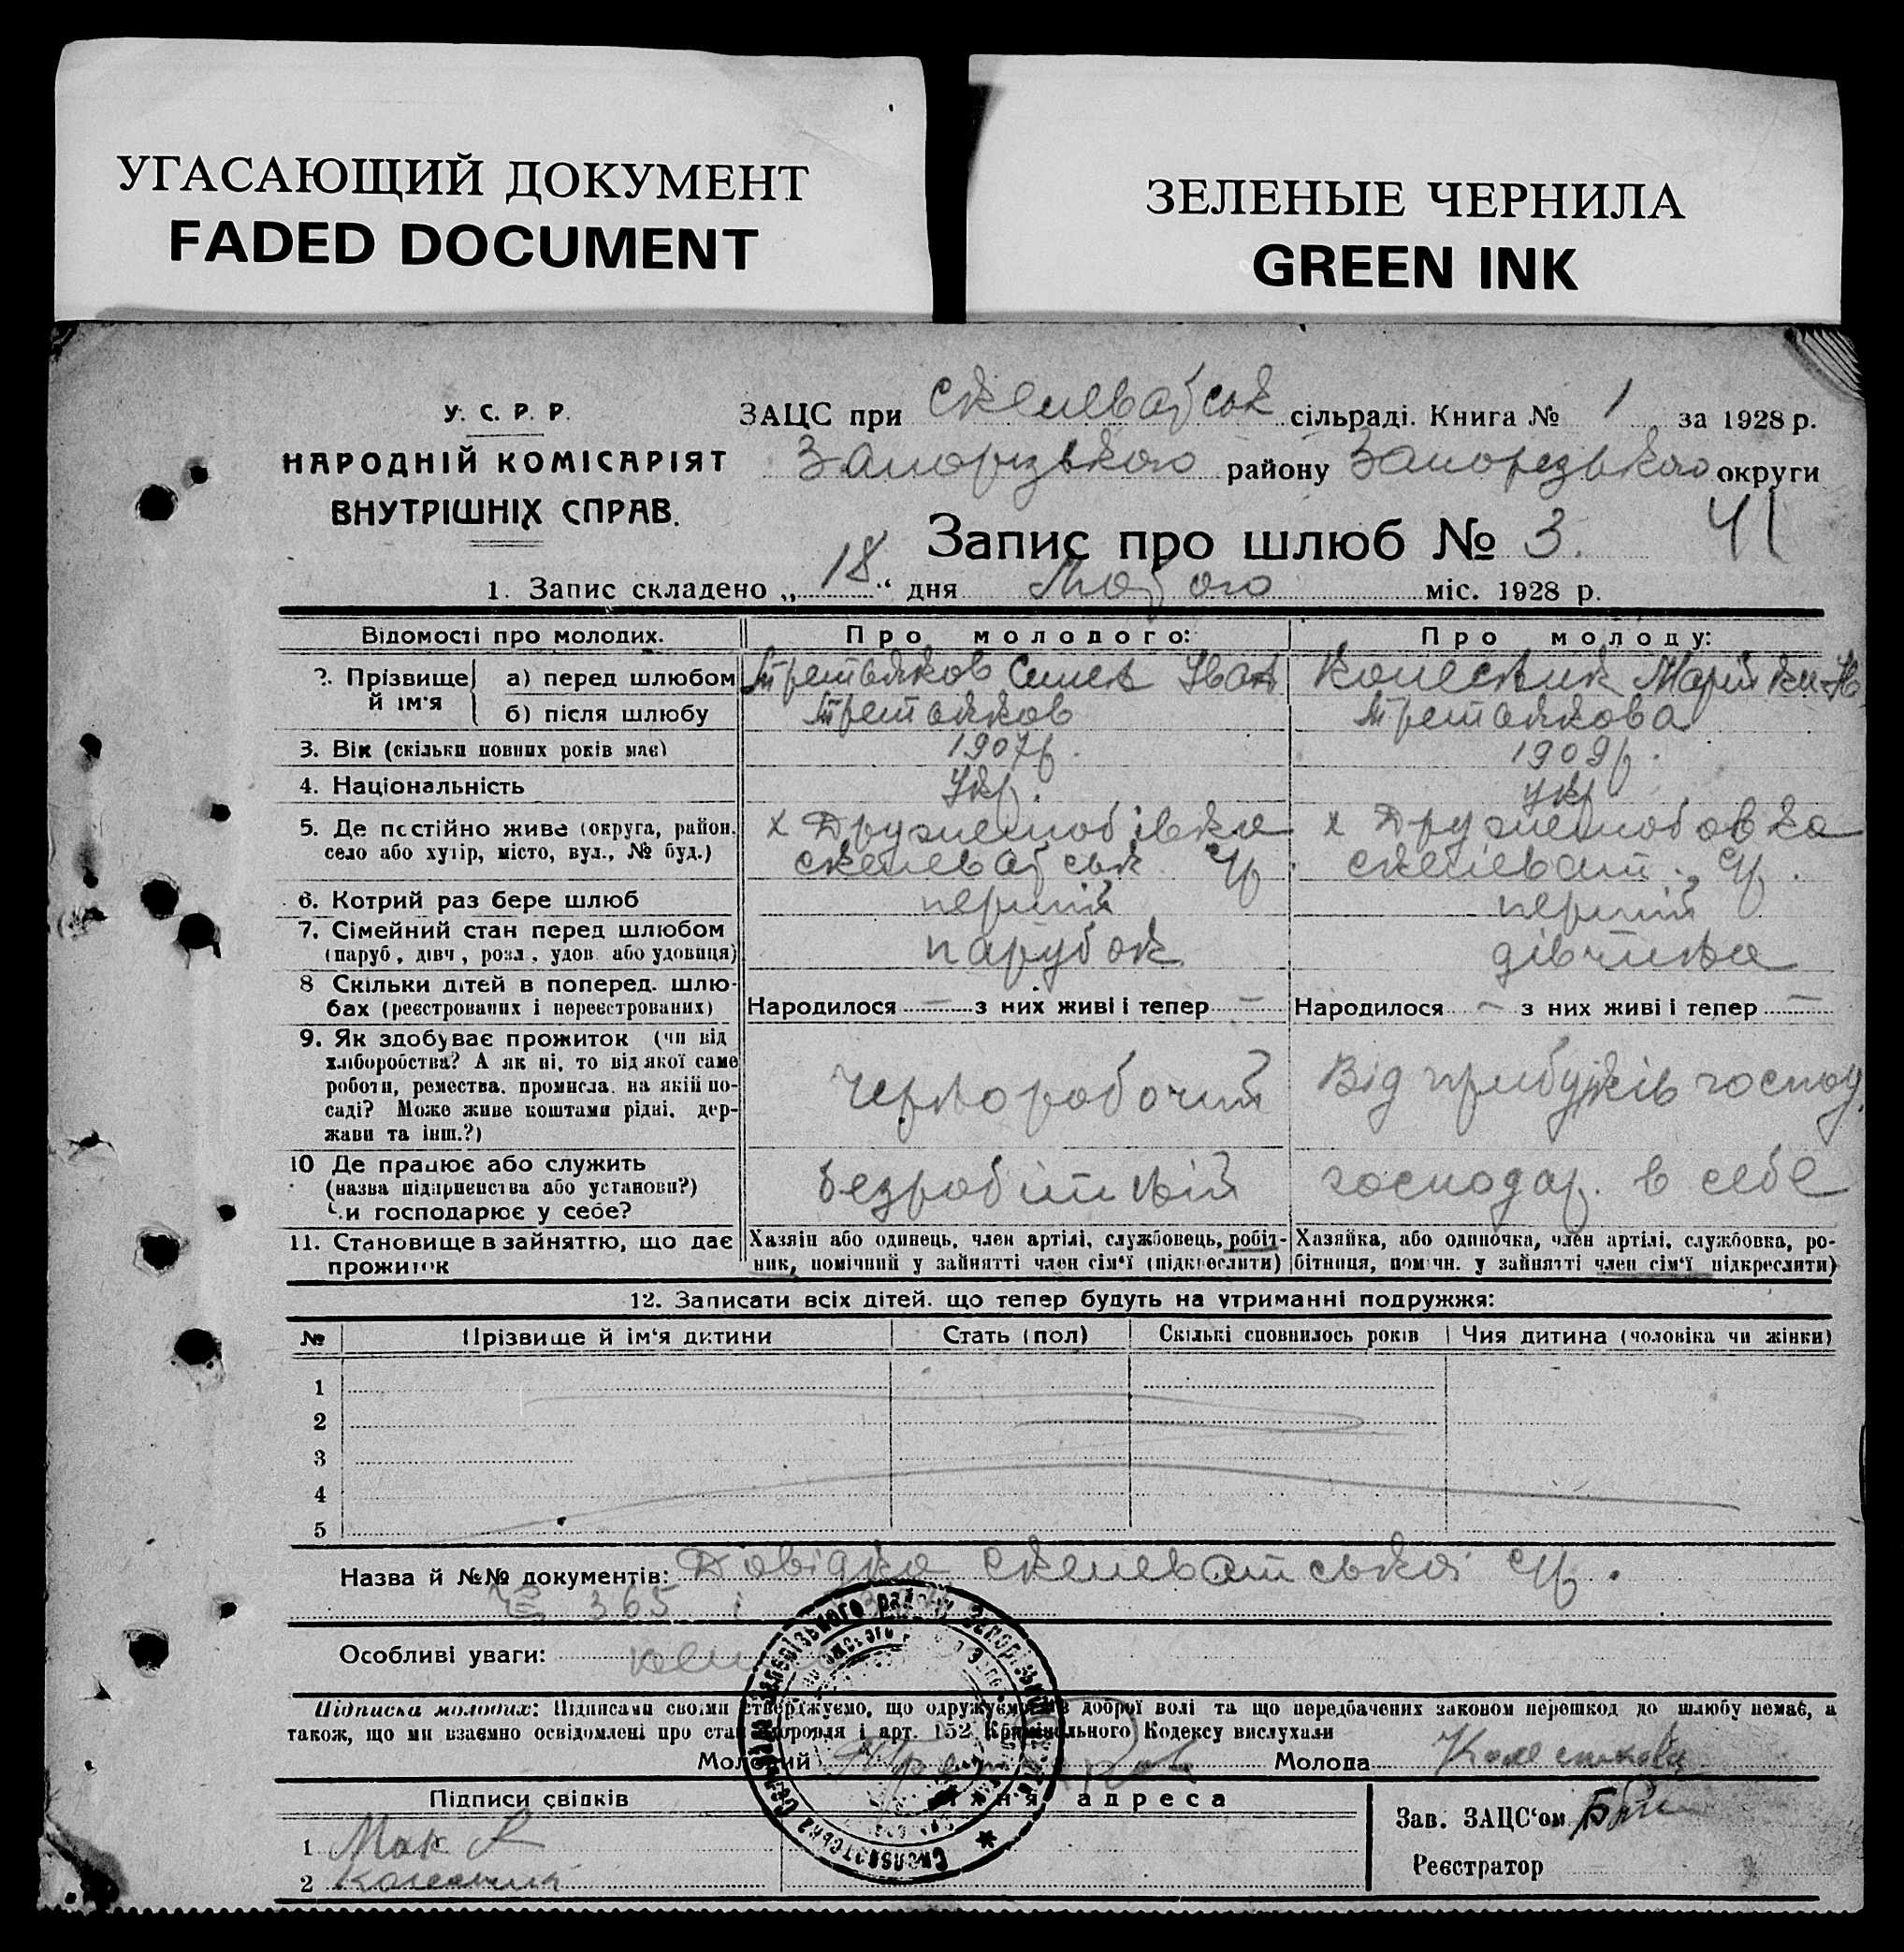 УГАСАЮЩИЙ ДОКУМЕНТ
FADED DOCUMENT
ЗЕЛЕНЫЕ ЧЕРНИЛА
GREEN INK
У. С. Р. Р.
НАРОДНІЙ КОМІСАРІЯТ
ВНУТРІШНІХ СПРАВ.
ЗАЦС при сільраді. Книга № 1 за 1928 р.
Запорізького району Запорізького округи
41
Запис про шлюб № 3.
1. Запис складено „18“ дня міс. 1928 р.
Відомості про молодих. Про молодого: Про молоду:
2. Прізвище й ім'я а) перед шлюбом Третьяков Семен Іван Колесник Марійки
б) після шлюбу Третьяков Третьякова
3. Вік (скільки повних років має) 1907р. 1909р.
4. Національність Укр. укр
5. Де постійно живе (округа, район, х Дружелюбівка х Дружелюбовка
село або хутір, місто, вул., № буд.) с/р с/р.
6. Котрий раз бере шлюб перший перший
7. Сімейний стан перед шлюбом
(паруб., дівч., розл., удов. або удовиця) парубок дівчина
8 Скільки дітей в поперед. шлю-
бах (реєстрованих і нереєстрованих) Народилося — з них живі і тепер — Народилося — з них живі і тепер —
9. Як здобуває прожиток (чи від
хліборобства? А як ні, то від якої саме
роботи, ремества, промисла, на якій по-
саді? Може живе коштами рідні, дер-
жави та інш.?) Чернорабочий Від прибутків господ.
10 Де працює або служить
(назва підприємства або установи?)
Чи господарює у себе? безробітний господар. в себе
11. Становище в зайняттю, що дає
прожиток
Хазяїн або одинець, член артілі, службовець, робіт-
ник, помічний у зайнятті член сім'ї (підкреслити)
Хазяйка, або одиночка, член артілі, службовка, ро-
бітниця, помічн. у зайнятті член сім'ї підкреслити)
12. Записати всіх дітей, що тепер будуть на утриманні подружжя:
№ Прізвище й ім'я дитини Стать (пол) Скількі сповнилось років Чия дитина (чоловіка чи жінки)
1
2
3
4
5
Назва й №№ документів: Довідка Скелеватської с/р.
№ 365 і
Особливі уваги:
Підписка молодих: Підписами своїми стверджуємо, що одружуємося з доброї волі та що передбачених законом перешкод до шлюбу немає, а
також, що ми взаємно освідомлені про стан здоровля і арт. 152 Кримінального Кодексу вислухали
Молодий Молода
Підписи свідків їхня адреса
Зав. ЗАЦС'ом
1
2 Колесник
Реєстратор